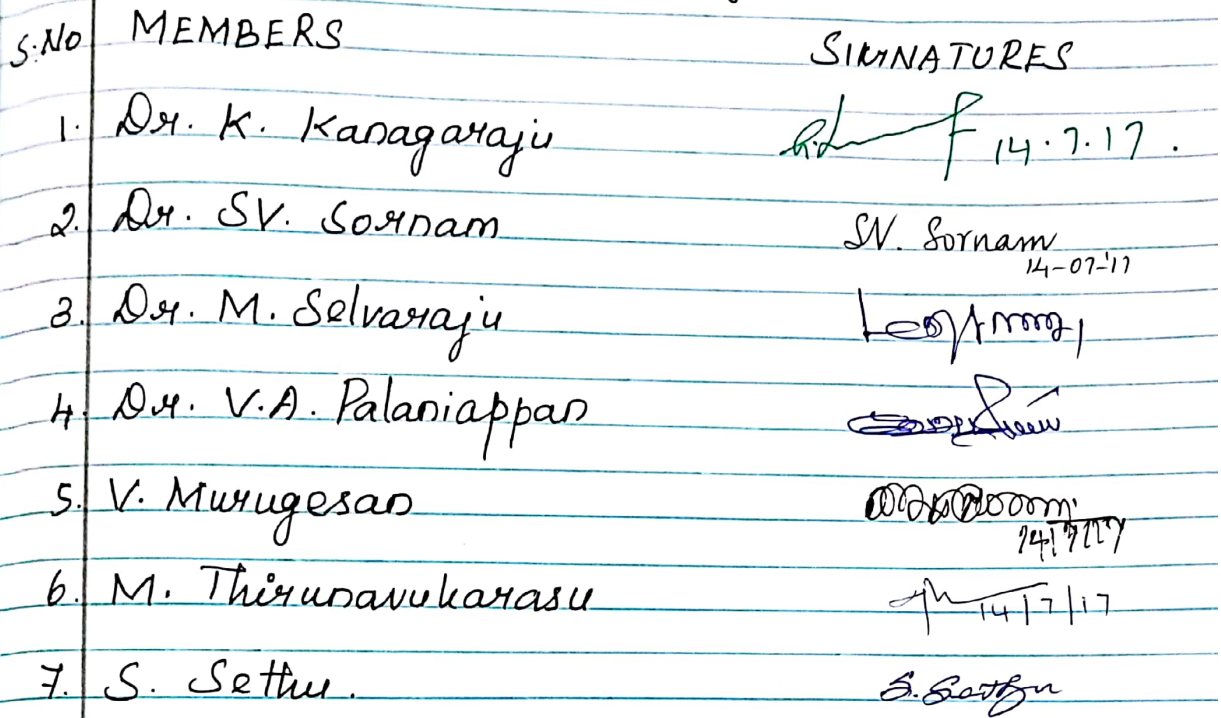 S.No MEMBERS SIGNATURES
1. Dr. K. Kanagaraju 14.7.17.
2. Dr. SV. Sornam SV. Sornam
14-07-'17
3. Dr. M. Selvaraju
4. Dr. V.A. Palaniappan
5. V. Murugesan
14/7/17
6. M. Thirunavukarasu 14/7/17
7. S. Sethu. S. Sethu